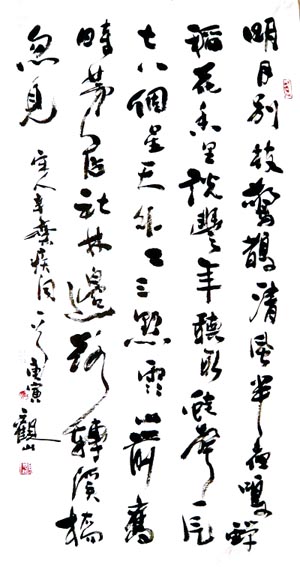 明月別枝驚鵲清風半夜鳴蟬
稻花香里說豐年聽取蛙聲一片
七八個星天外兩三點雨山前舊
時茅店社林邊路轉溪橋
忽見
宋人辛棄疾詞一首庚寅觀山